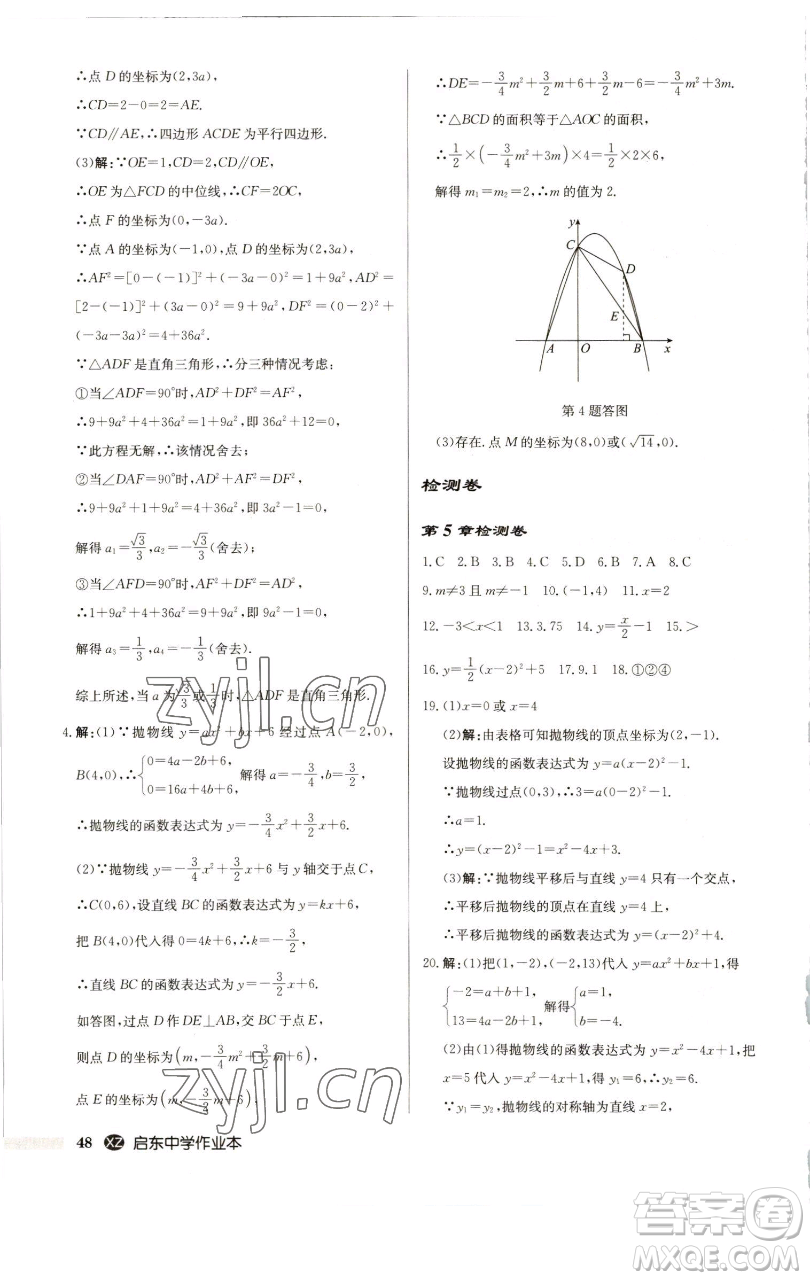 ∴点 D 的坐标为(2,3a),
∴CD=2-0=2=AE.
∵CD∥AE,∴四边形 ACDE 为平行四边形.
(3)解:∵OE=1,CD=2,CD∥OE,
∴OE 为△FCD 的中位线,∴CF=2OC,
∴点 F 的坐标为(0,-3a).
∵点 A 的坐标为(-1,0),点 D 的坐标为(2,3a),
∴AF²=[0-(-1)]²+(-3a-0)²=1+9a²,AD²=
[2-(-1)]²+(3a-0)²=9+9a²,DF²=(0-2)²+
(-3a-3a)²=4+36a².
∵△ADF 是直角三角形,∴分三种情况考虑:
①当∠ADF=90°时,AD²+DF²=AF²,
∴9+9a²+4+36a²=1+9a²,即 36a²+12=0.
∵此方程无解,∴该情况舍去;
②当∠DAF=90°时,AD²+AF²=DF²,
∴9+9a²+1+9a²=4+36a²,即 18a²=6,
解得 a₁=√3/3,a₂=-√3/3(舍去);
③当∠AFD=90°时,AF²+DF²=AD²,
∴1+9a²+4+36a²=9+9a²,即 36a²=4,
解得 a₃=1/3,a₄=-1/3(舍去).
综上所述,当 a 为√3/3或1/3时,△ADF 是直角三角形.
4.解:(1)∵抛物线 y=ax²+bx+6 经过点 A(-2,0),
B(4,0),∴{0=4a-2b+6, 0=16a+4b+6, 解得 a=-3/4,b=3/2,
∴抛物线的函数表达式为 y=-3/4x²+3/2x+6.
(2)∵抛物线 y=-3/4x²+3/2x+6 与 y 轴交于点 C,
∴C(0,6),设直线 BC 的函数表达式为 y=kx+6,
把 B(4,0)代入得 0=4k+6,∴k=-3/2,
∴直线 BC 的函数表达式为 y=-3/2x+6.
如答图,过点 D 作 DE⊥AB,交 BC 于点 E,
则点 D 的坐标为(m,-3/4m²+3/2m+6),
点 E 的坐标为(m,-3/2m+6),
48 XZ 启东中学作业本
∴DE=-3/4m²+3/2m+6+3/2m-6=-3/4m²+3m.
∵△BCD 的面积等于△AOC 的面积,
∴1/2×(-3/4m²+3m)×4=1/2×2×6,
解得 m₁=m₂=2,∴m 的值为 2.
y
C
D
E
A O B x
第 4 题答图
(3)存在.点 M 的坐标为(8,0)或(√14,0).
检测卷
第 5 章检测卷
1.C 2.B 3.B 4.C 5.D 6.B 7.A 8.C
9.m≠3 且 m≠-1 10.(-1,4) 11.x=2
12.-3<x<1 13.3.75 14.y=x/2-1 15.>
16.y=1/2(x-2)²+5 17.9.1 18.①②④
19.(1)x=0 或 x=4
(2)解:由表格可知抛物线的顶点坐标为(2,-1).
设抛物线的函数表达式为 y=a(x-2)²-1.
∵抛物线过点(0,3),∴3=a(0-2)²-1,
∴a=1.
∴y=(x-2)²-1=x²-4x+3.
(3)解:∵抛物线平移后与直线 y=4 只有一个交点,
∴平移后抛物线的顶点在直线 y=4 上,
∴平移后抛物线的函数表达式为 y=(x-2)²+4.
20.解:(1)把(1,-2),(-2,13)代入 y=ax²+bx+1,得
{-2=a+b+1, 13=4a-2b+1, 解得{a=1, b=-4.
(2)由(1)得抛物线的函数表达式为 y=x²-4x+1,把
x=5 代入 y=x²-4x+1,得 y₁=6,∴y₂=6.
∵y₁=y₂,抛物线的对称轴为直线 x=2,
zyjl.cn
zyjl.cn
答案卷
MXQE.COM